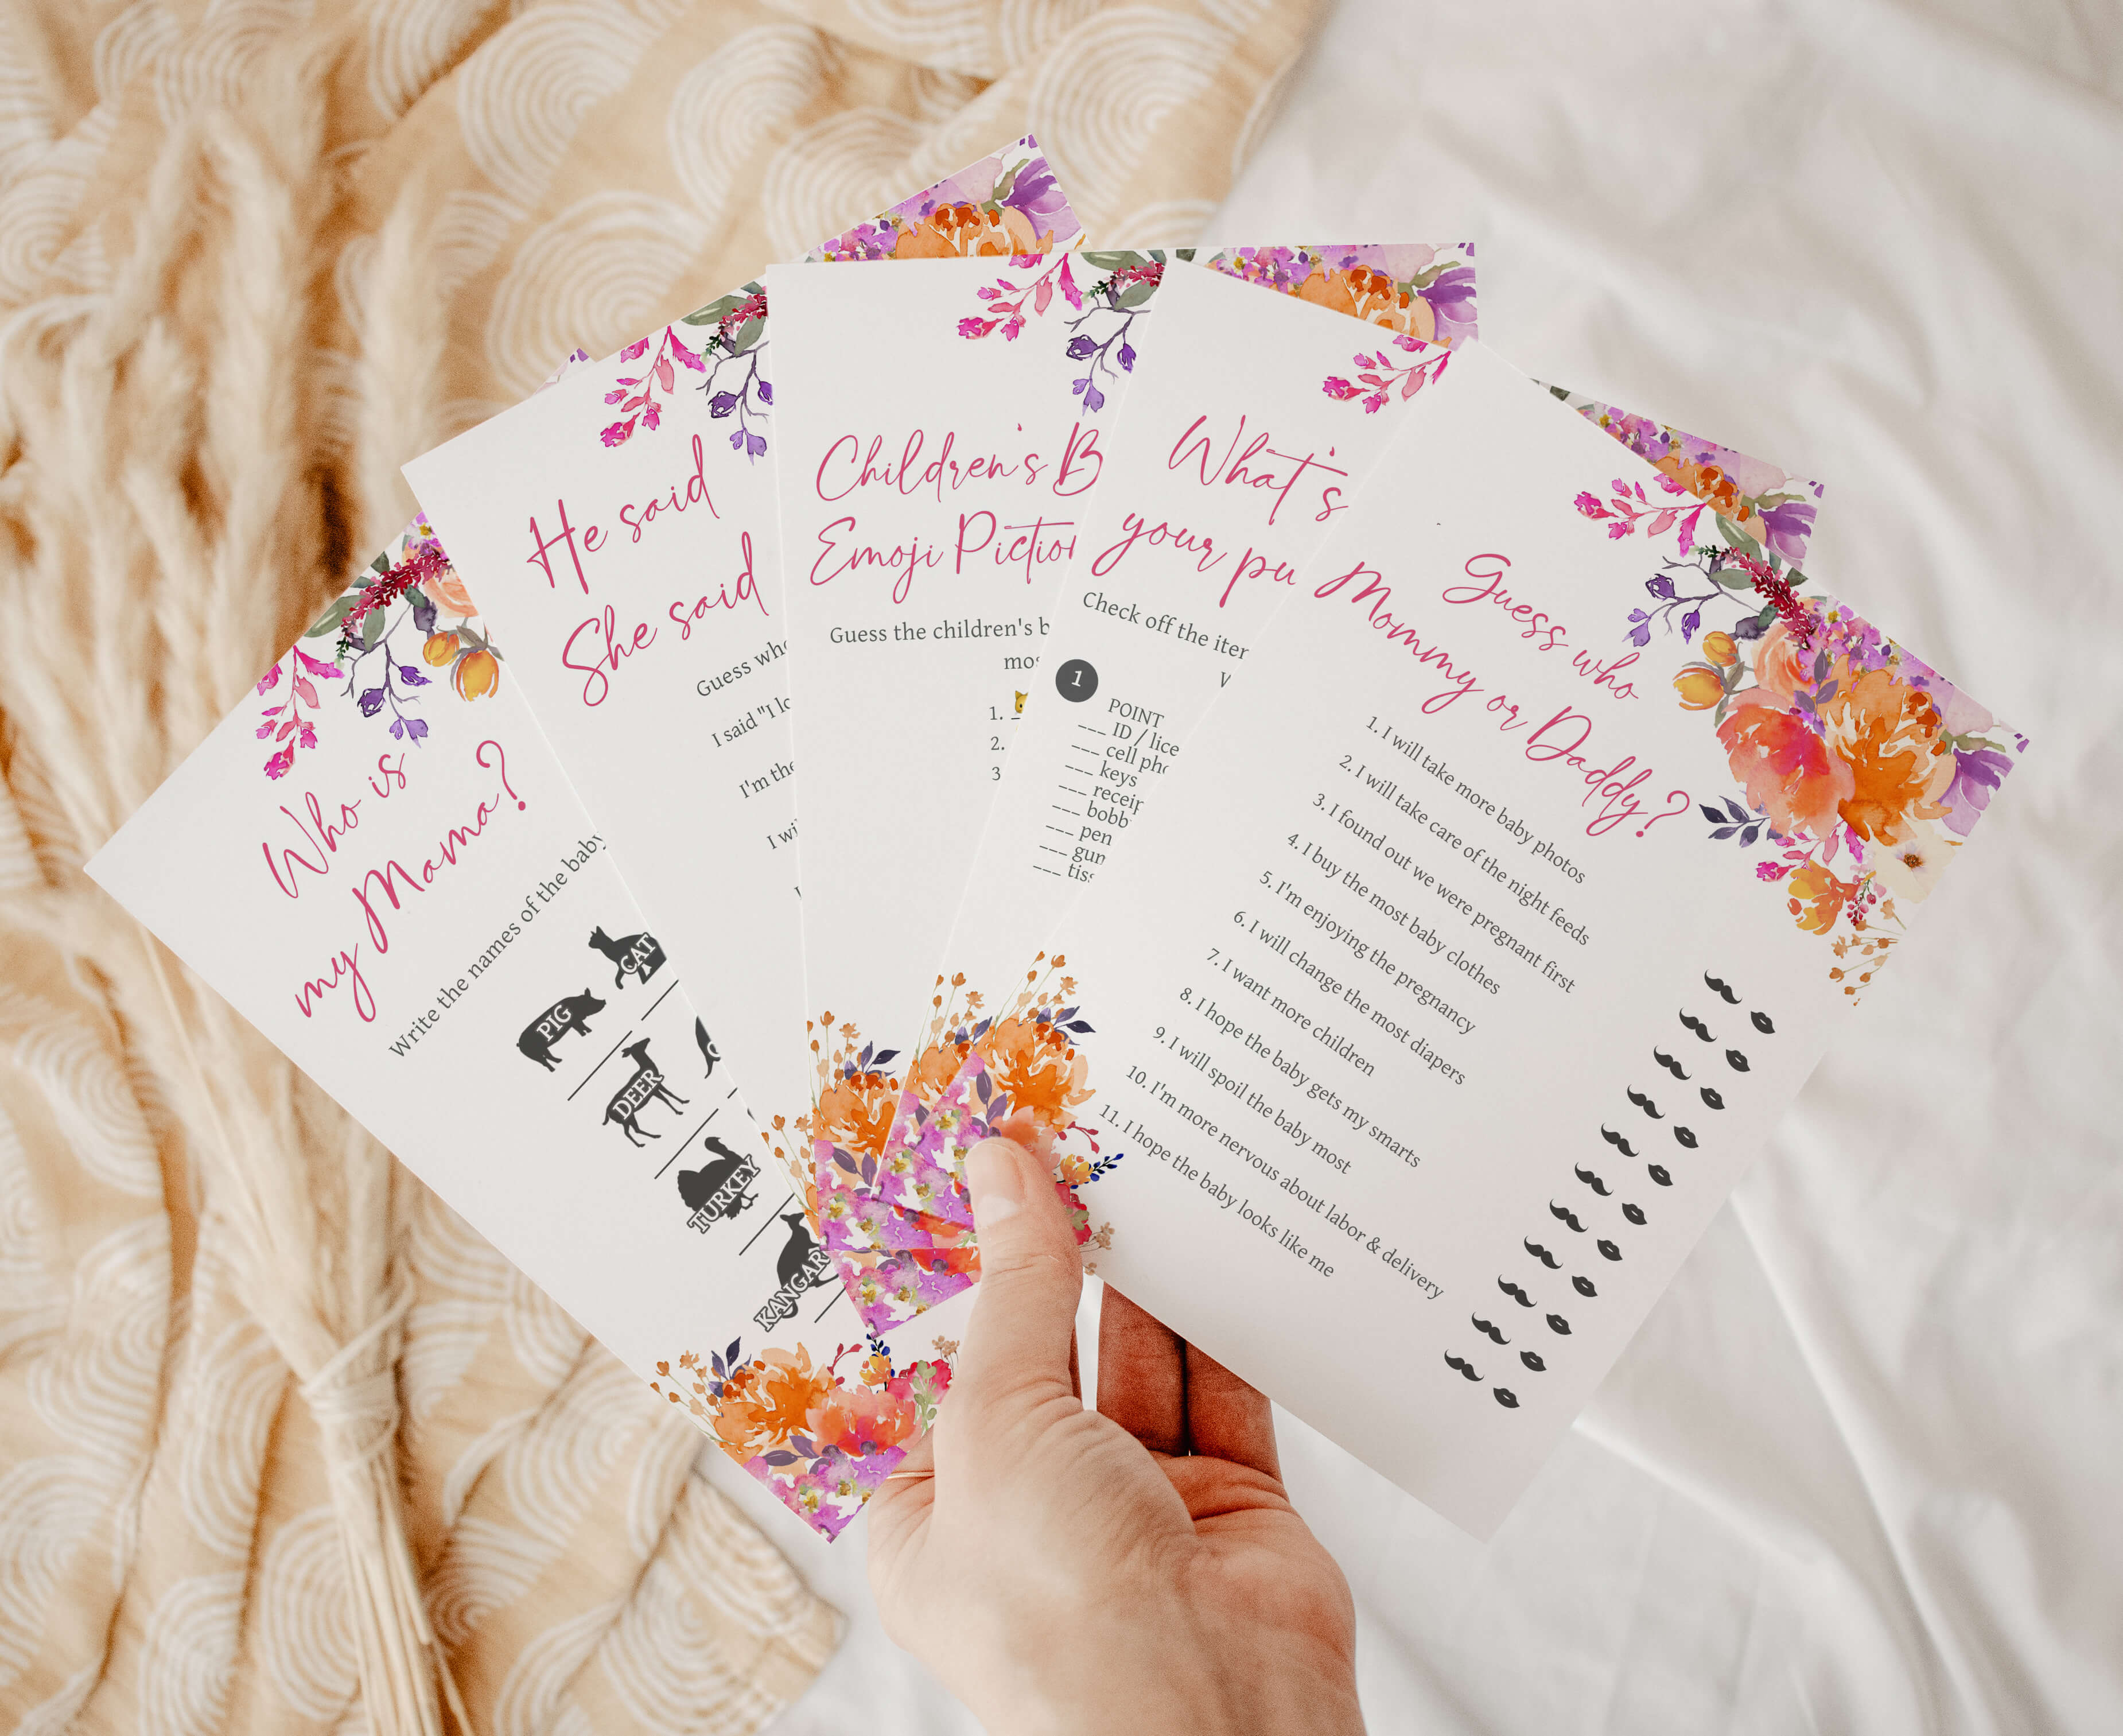 Who is
my Mama?
Write the names of the baby
CAT
PIG
DEER
TURKEY
KANGAR
He said
She said
Guess who
I said "I lo
I'm the
I wi
Children's B
Emoji Piction
Guess the children's b
mos
1.
2.
3
What's
your pu
Check off the iter
1
POINT
___ ID / lice
___ cell pho
___ keys
___ receip
___ bobb
___ pen
___ gum
___ tiss
Guess who
Mommy or Daddy?
1. I will take more baby photos
2. I will take care of the night feeds
3. I found out we were pregnant first
4. I buy the most baby clothes
5. I'm enjoying the pregnancy
6. I will change the most diapers
7. I want more children
8. I hope the baby gets my smarts
9. I will spoil the baby most
10. I'm more nervous about labor & delivery
11. I hope the baby looks like me